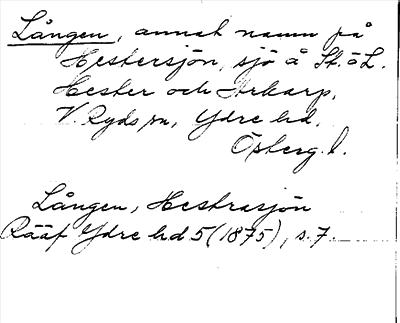 Lången, annat namn på
Hestersjön, sjö å St. o L.
Hester och Arkarp,
V. Ryds sn, Ydre hd.
Österg. l.
Lången, Hestrasjön
Rääf Ydre hd 5 (1875), s. 7.